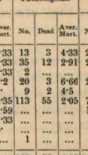 No. Dead Aver. Mort.
·33 13 3 4·33
·33 35 12 2·91
·33 2 ... ...
·2 20 3 6·66
... 9 2 4·5
·35 113 55 2·05
·59 ... ... ...
·33 ... ... ...
... ... ... ...
... 1 ... ...